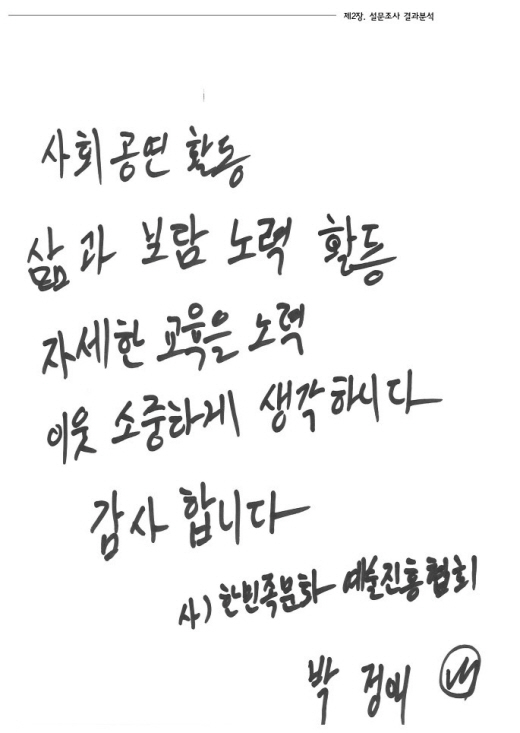 제2장. 설문조사 결과분석
사회공연 활동
삶과 보람 노력 활동
자세한 교육을 노력
이웃 소중하게 생각하니다
감사 합니다
사) 한민족문화 예술진흥협회
박 정애